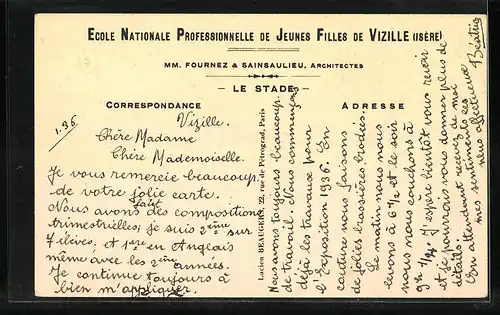 ECOLE NATIONALE PROFESSIONNELLE DE JEUNES FILLES DE VIZILLE (ISÈRE)
MM. FOURNEZ & SAINSAULIEU, ARCHITECTES
— LE STADE —
CORRESPONDANCE
ADRESSE
1.36
Vizille.
Chère Madame
Chère Mademoiselle
Je vous remercie beaucoup
de votre jolie carte.
Nous avons fait des compositions
trimestrielles, je suis 2ème sur
7 élèves, et 1ère en Anglais
même avec les 2ème années.
Je continue toujours à
bien m'appliquer.
Lucien BEAUGERS, 22, rue de Pétrograd, Paris
Nous avons toujours beaucoup
de travail. Nous commençons
déjà les travaux pour
l'Exposition 1936. En
couture nous faisons
de jolies brassières brodées.
Le matin nous nous
levons à 6h 1/2 et le soir
nous nous couchons à
9h 1/4. J'espère bientôt vous revoir
et je pourrais vous donner plus de
détails.
En attendant recevez de moi
mes sentiments les
affectueux
Béatrix